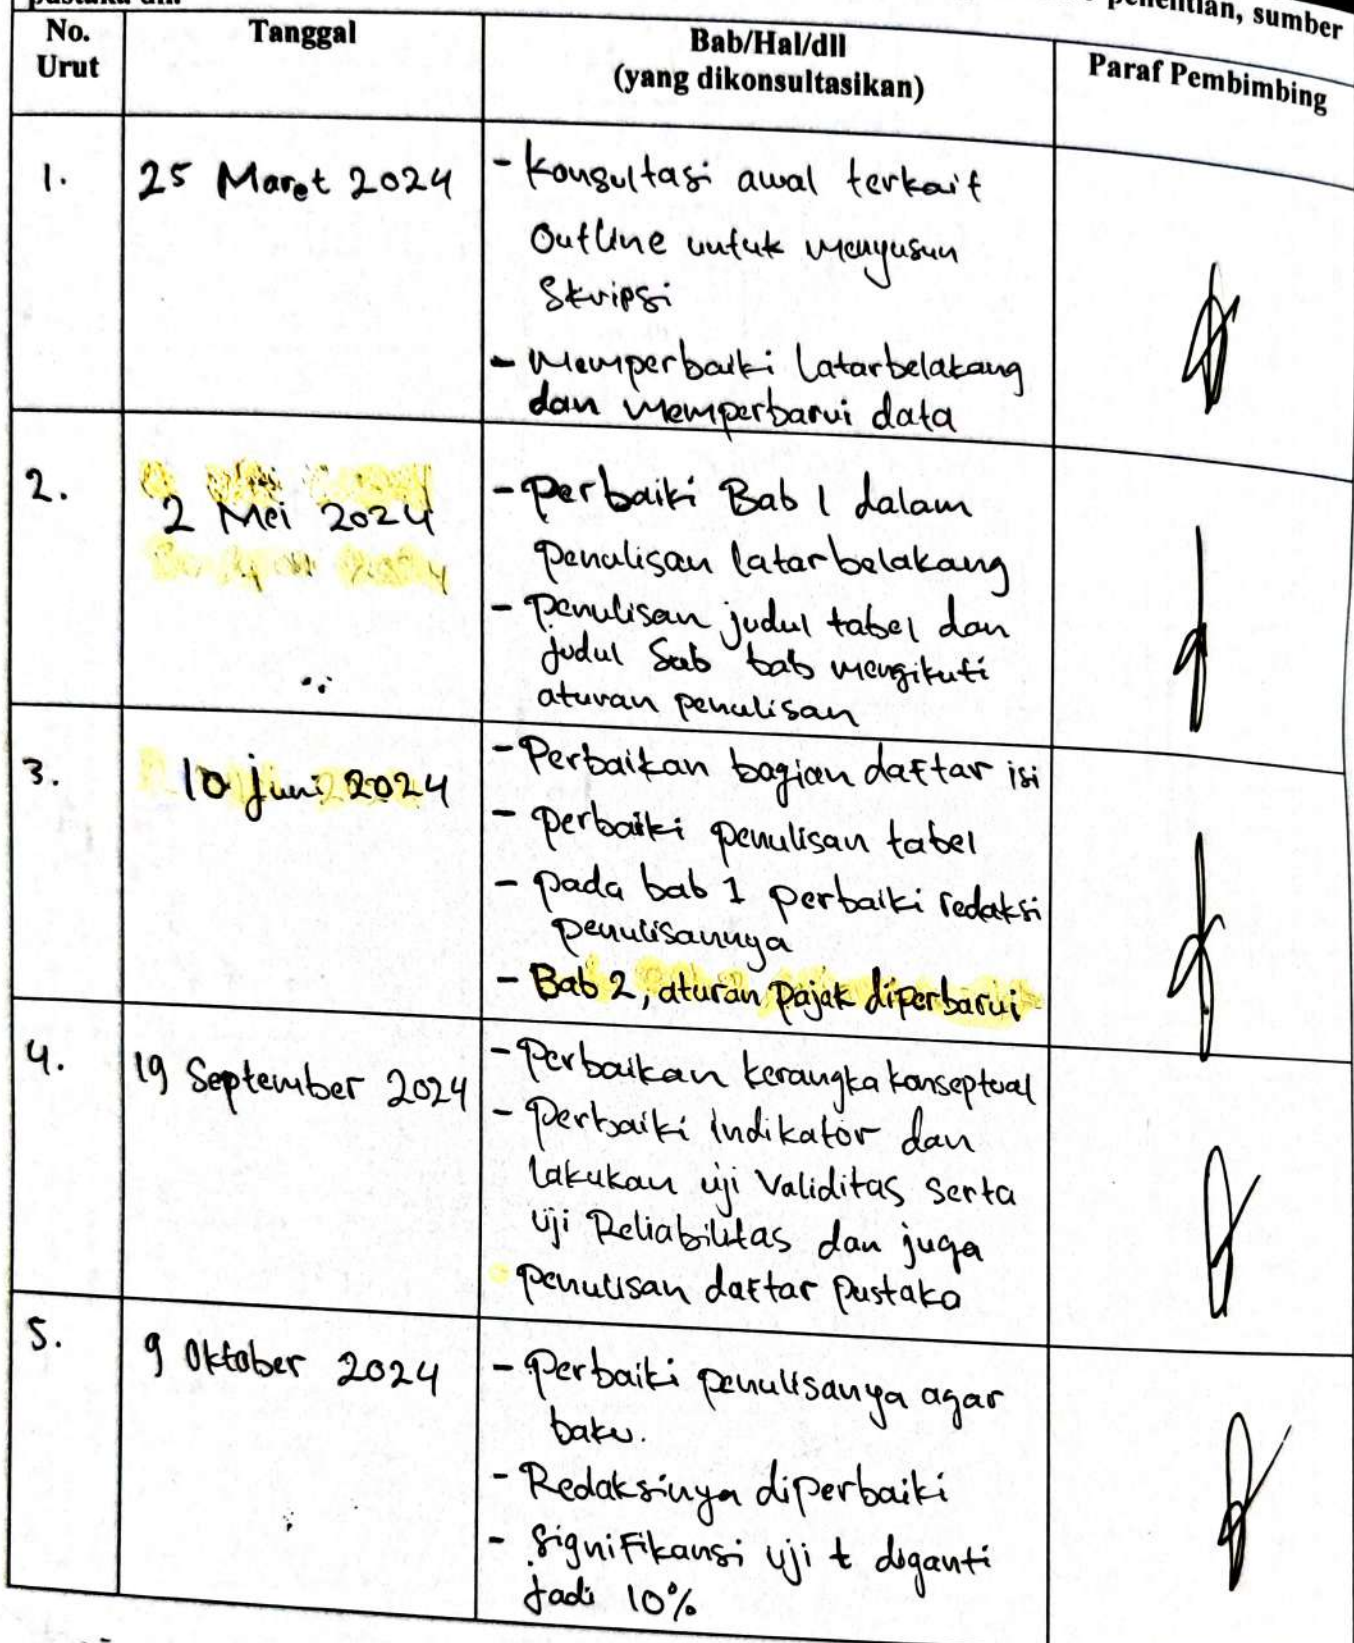 penelitian, sumber
pustaka dll.
No. Urut
Tanggal
Bab/Hal/dll
(yang dikonsultasikan)
Paraf Pembimbing
1.
25 Maret 2024
- Konsultasi awal terkait
Outline untuk menyusun
Skripsi
- Memperbaiki Latarbelakang
dan memperbarui data
2.
2 Mei 2024
- Perbaiki Bab 1 dalam
penulisan latar belakang
- Penulisan judul tabel dan
judul Sub bab mengikuti
aturan penulisan
3.
10 juni 2024
- Perbaikan bagian daftar isi
- perbaiki penulisan tabel
- pada bab 1 perbaiki redaksi
penulisannya
- Bab 2, aturan pajak diperbarui
4.
19 September 2024
- Perbaikan kerangka konseptual
- Perbaiki Indikator dan
lakukan uji Validitas serta
uji Reliabilitas dan juga
penulisan daftar Pustaka
5.
9 Oktober 2024
- Perbaiki penulisanya agar
baku.
- Redaksinya diperbaiki
- Signifikansi uji t diganti
jadi 10%